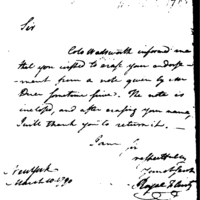 Sir
Col. Wadsworth informed me
that you wished to erase your endorse-
ment from a note given by Mr
Duer sometime since. The note is
inclosed, and after erasing your name,
I will thank you to return it.
I am Sir
respectfully
Your Obed Serv
Royal Flint
New York
March 10 1790